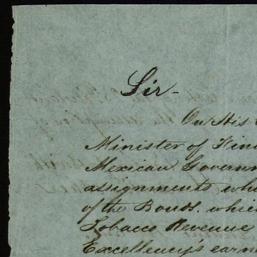 Sir -
On His
Minister of Fin
Mexican Governm
assignments, wh
of the Bonds, whi
Tobacco Revenue
Excellency's earn